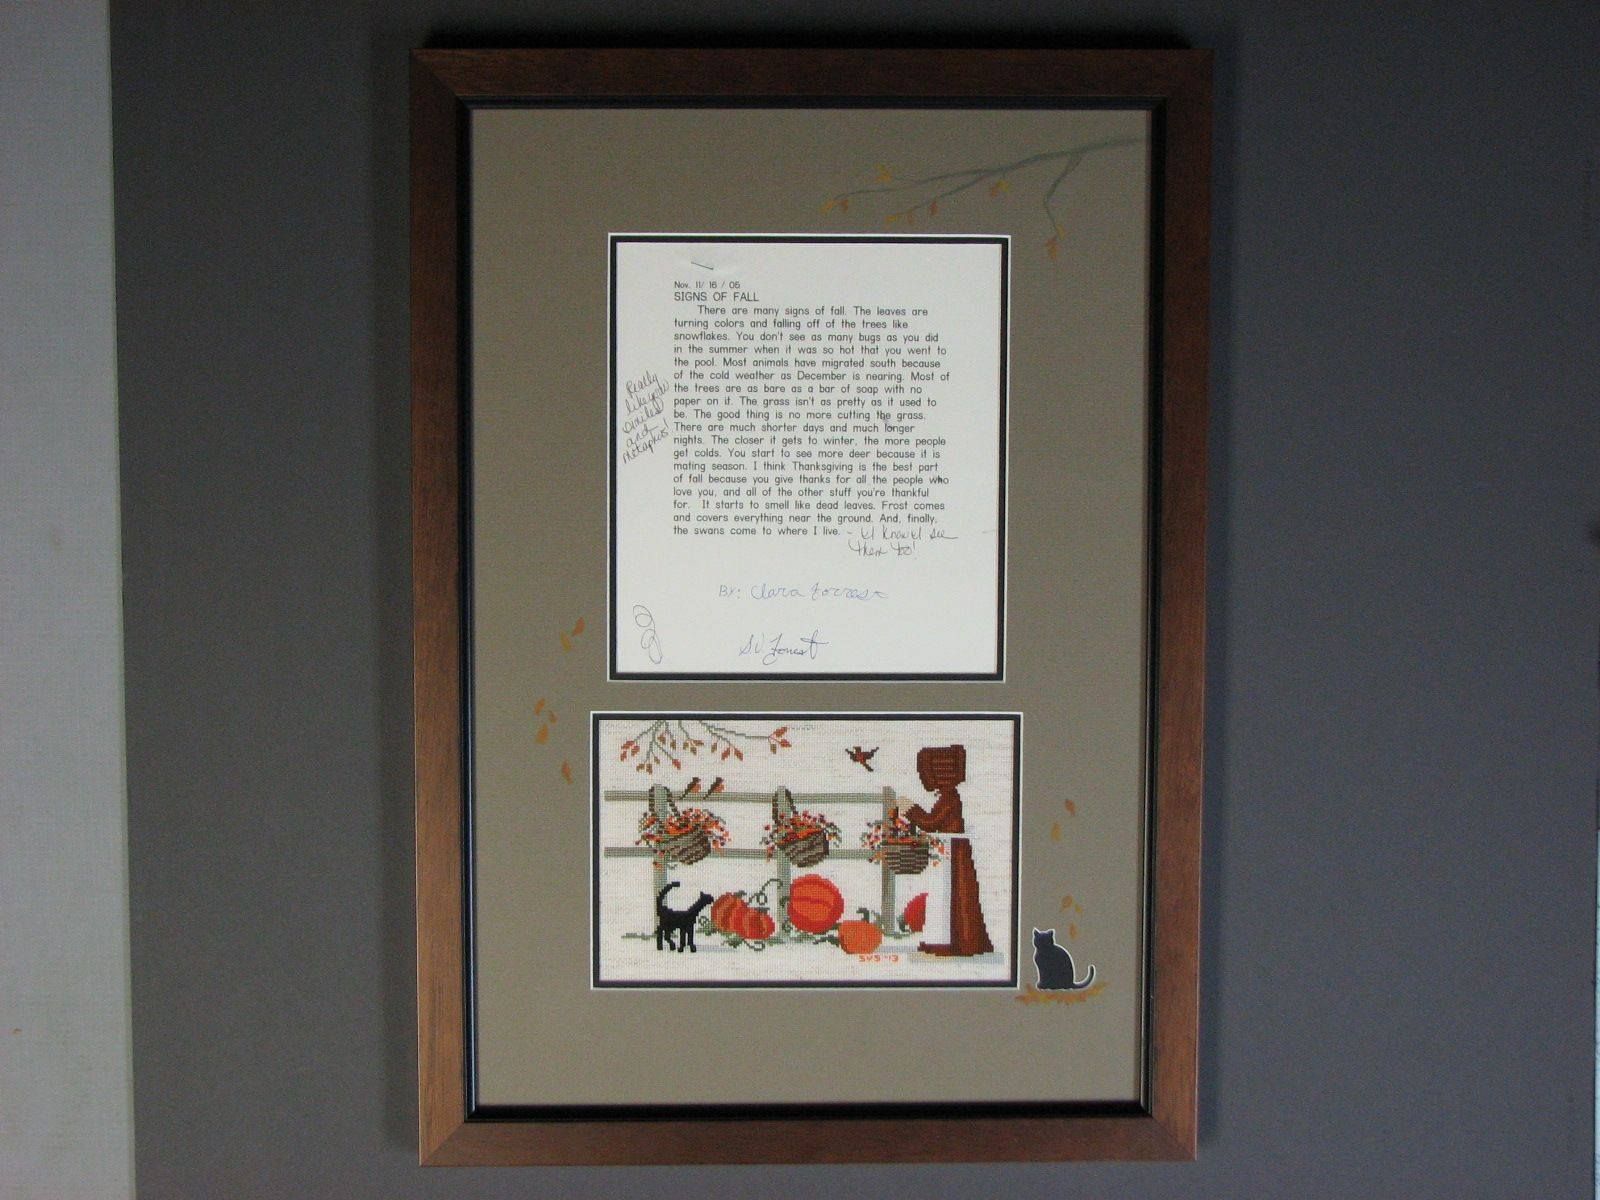 Nov. 11/ 16 / 05
SIGNS OF FALL
There are many signs of fall. The leaves are
turning colors and falling off of the trees like
snowflakes. You don't see as many bugs as you did
in the summer when it was so hot that you went to
the pool. Most animals have migrated south because
of the cold weather as December is nearing. Most of
the trees are as bare as a bar of soap with no
paper on it. The grass isn't as pretty as it used to
be. The good thing is no more cutting the grass.
There are much shorter days and much longer
nights. The closer it gets to winter, the more people
get colds. You start to see more deer because it is
mating season. I think Thanksgiving is the best part
of fall because you give thanks for all the people who
love you, and all of the other stuff you're thankful
for. It starts to smell like dead leaves. Frost comes
and covers everything near the ground. And, finally,
the swans come to where I live. - I know I see
them too!
Really
like your
similes
and
metaphors!
BY: Clara Forrest
S.V. Forrest
SVS '13